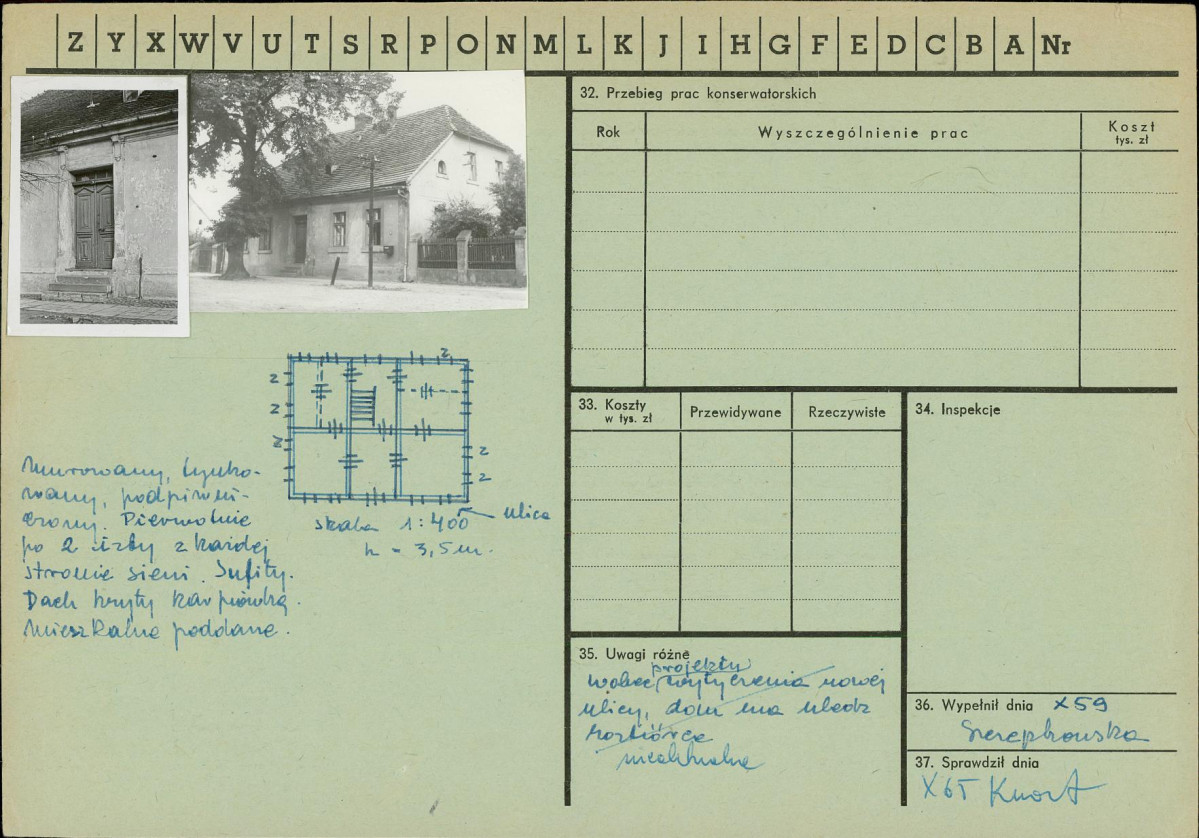 Z Y X W V U T S R P O N M L K J I H G F E D C B A Nr
32. Przebieg prac konserwatorskich
Rok
Wyszczególnienie prac
Koszt
tys. zł
2
2
2
2
2
2
skala 1:400
ulica
h = 3,5 m.
Murowany, tynko-
wany, podpiwni-
czony. Pierwotnie
po 2 izby z każdej
stronie sieni. Sufity.
Dach kryty karpiówką.
Mieszkalne poddasze.
33. Koszty
w tys. zł
Przewidywane
Rzeczywiste
34. Inspekcje
35. Uwagi różne
projektu
wobec wytyczenia nowej
ulicy, dom ma uledz
rozbiórce
nieaktualne
36. Wypełnił dnia X 59
Szczepkowska
37. Sprawdził dnia
X 65